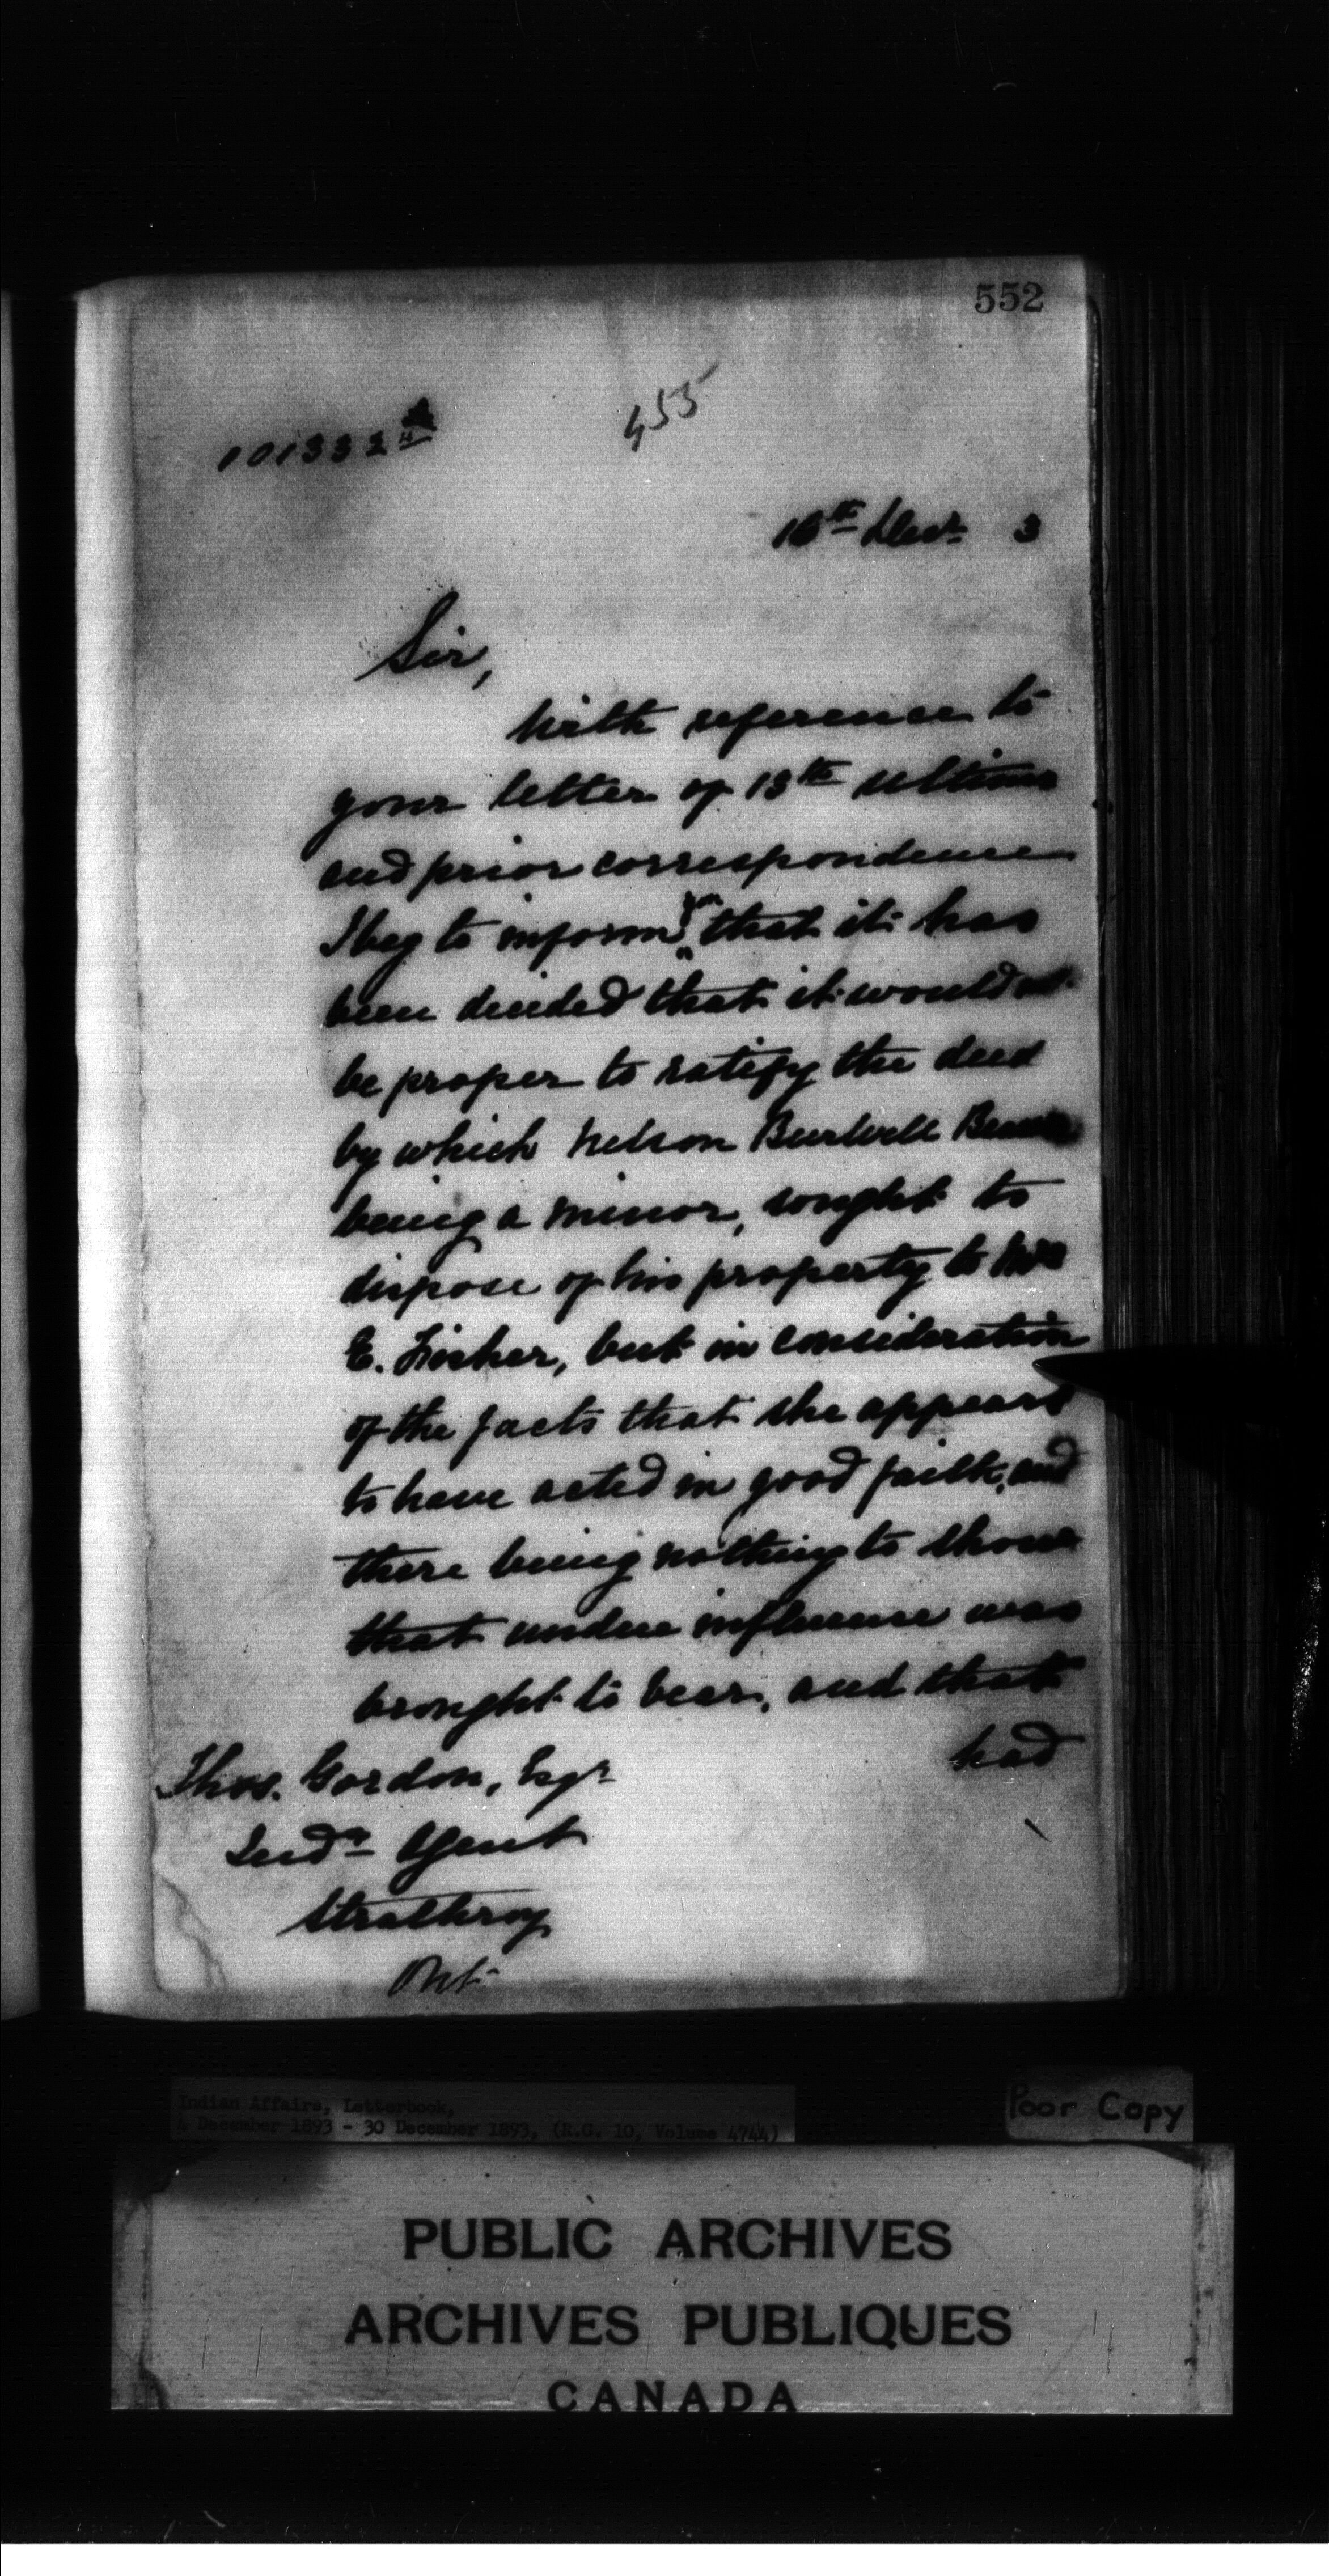 552
455
101332
16th Decr. 3
Sir,
With reference to
your letter of 13th ultimo
and prior correspondence
I beg to inform you that it has
been decided that it would not
be proper to ratify the deed
by which Nelson Burwell Beaver
being a minor, sought to
dispose of his property to Mrs
E. Fisher, but in consideration
of the facts that she appears
to have acted in good faith, and
there being nothing to show
that undue influence was
brought to bear, and that
had
Thos. Gordon, Esqr
Indn Agent
Strathroy
Ont.
Indian Affairs, Letterbook,
4 December 1893 - 30 December 1893, (R.G. 10, Volume 4744)
Poor Copy
PUBLIC ARCHIVES
ARCHIVES PUBLIQUES
CANADA